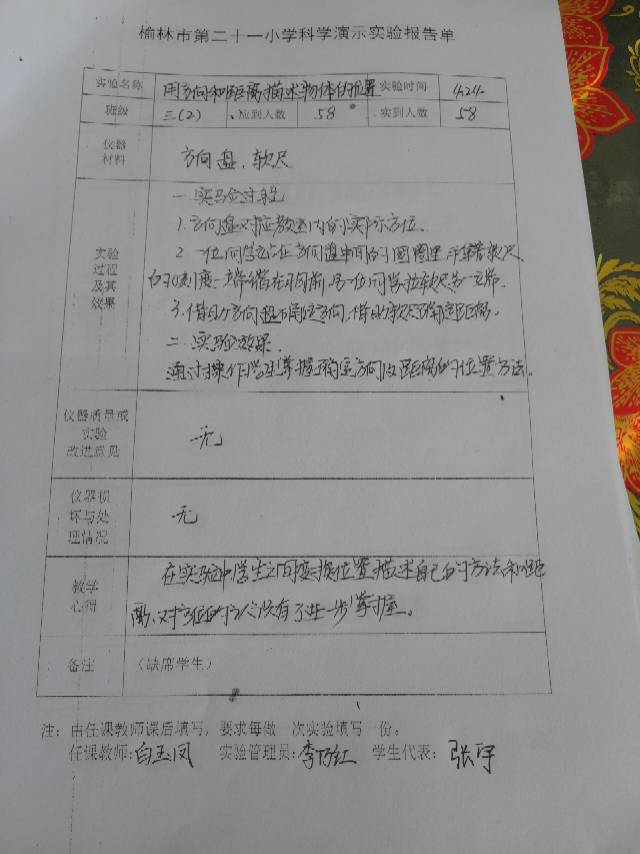 榆林市第二十一小学科学演示实验报告单
实验名称 用方向和距离描述物体的位置 实验时间 4.24.
班级 三(2) 应到人数 58 实到人数 58
仪器
材料
方向盘、软尺
实验
过程
及其
效果
一 实验过程
1.方向盘对应教室内的实际方位、
2 一位同学站在方向盘中间的小圆圈里,手拿着软尺
3.借助方向盘确定方向,借助软尺确定距离。
二 实验效果.
通过操作学生掌握确定方向及距离的位置方法。
仪器质量或
实验
改进意见
无
仪器损
坏与处
理情况
无
教学
心得
在实验中学生之间变换位置描述自己的方法和距
离,对方位的认识有了进一步掌握。
备注 (缺席学生)
注: 由任课教师课后填写,要求每做一次实验填写一份。
任课教师:白玉凤 实验管理员:李巧红 学生代表: 张宇